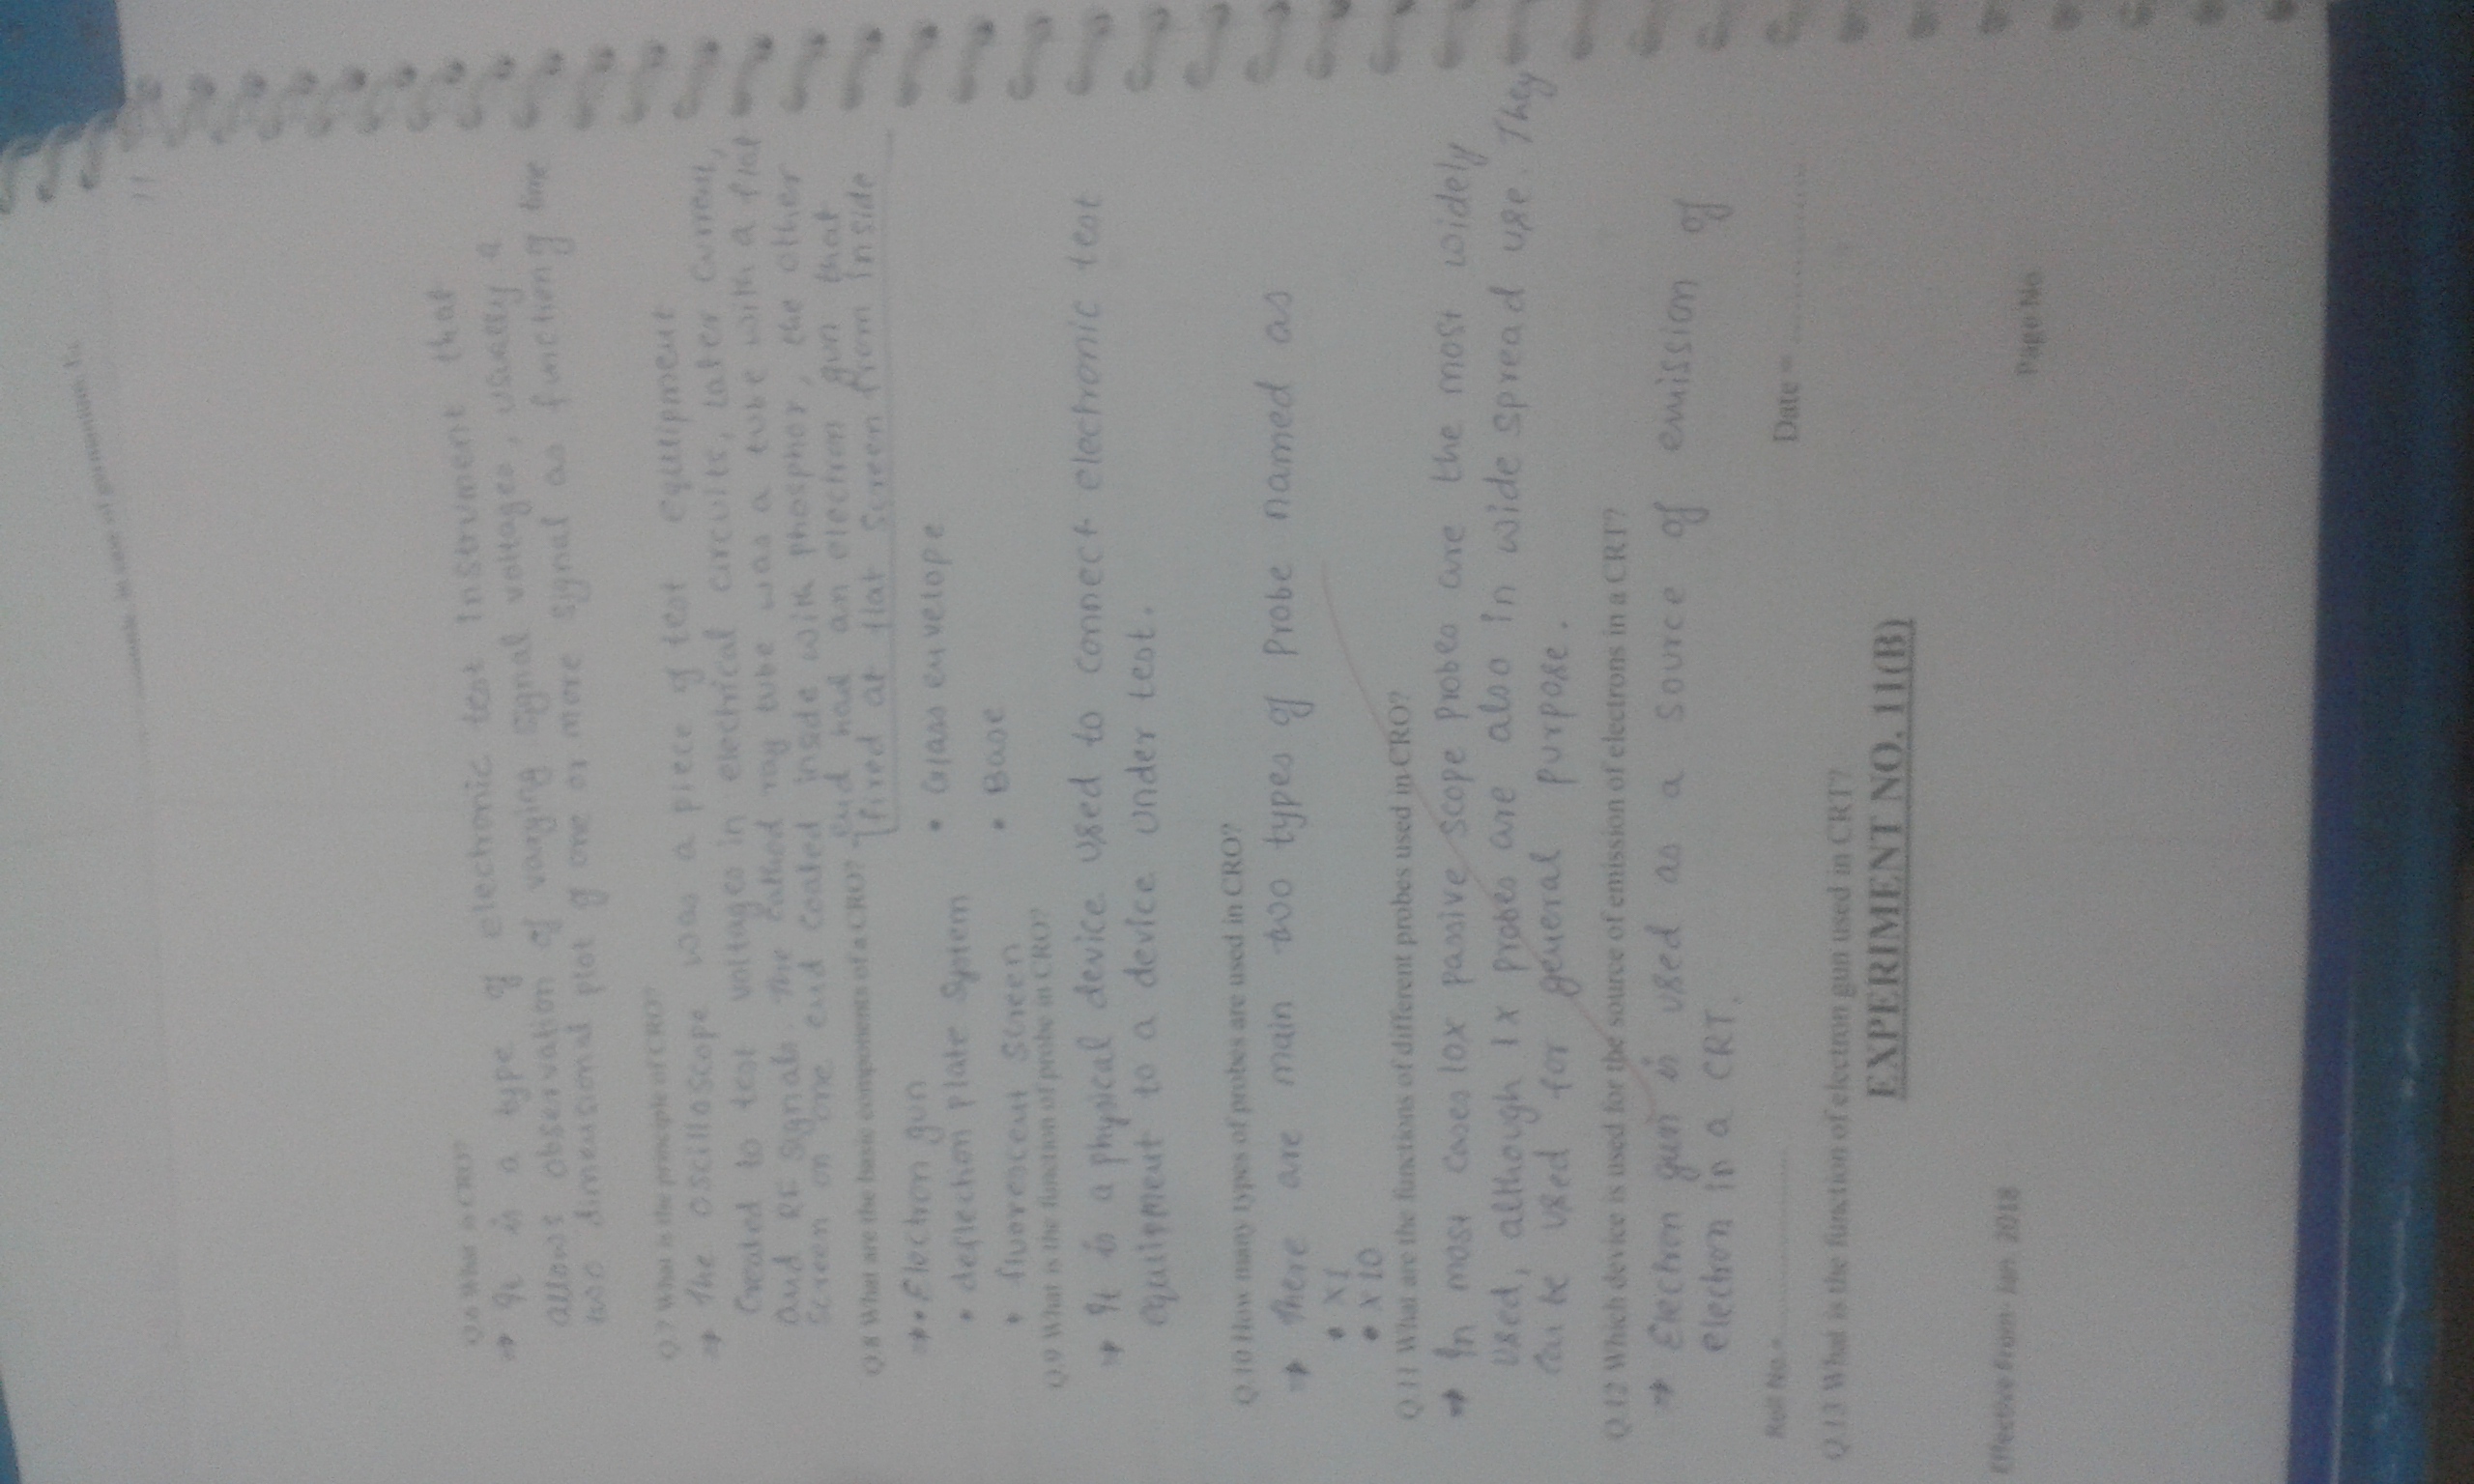 11
Q.6 What is CRO?
→ It is a type of electronic test Instrument that
allows observation of varying signal voltages, usually a
two dimensional plot of one or more signal as function of time
Q.7 What is the principle of CRO?
→ The oscilloscope was a piece of test equipment
created to test voltages in electrical circuits, later current,
and RF signals. The cathod ray tube was a tube with a flat
screen on one end coated inside with phosphor, the other
end had an electron gun that
fired at flat screen from inside
Q.8 What are the basic components of a CRO?
→ • Electron gun • Glass envelope
• deflection plate system • Base
• fluorescent screen
Q.9 What is the function of probe in CRO?
→ It is a physical device used to connect electronic test
equipment to a device under test.
Q.10 How many types of probes are used in CRO?
→ There are main two types of probe named as
• X1
• X10
Q.11 What are the functions of different probes used in CRO?
→ In most cases 10x passive scope probes are the most widely
used, although 1x probes are also in wide spread use. They
can be used for general purpose.
Q.12 Which device is used for the source of emission of electrons in a CRT?
→ Electron gun is used as a source of emission of
electron in a CRT.
Roll No.= .................... Date= ....................
Q.13 What is the function of electron gun used in CRT?
EXPERIMENT NO. 11(B)
Effective From- Jan 2018 Page No